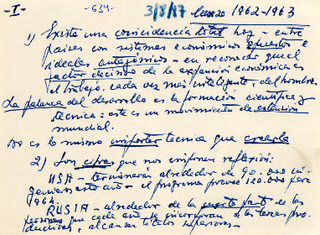 -I- -634- 3/8/87 Curso 1962-1963
1) Existe una coincidencia total hoy - entre
países con sistemas económicos opuestos e
ideales antagónicos - en reconocer que el
factor decisivo de la expansión económica es
el trabajo, cada vez más inteligente del hombre.
La palanca del desarrollo es la formación científica y
técnica: este es un movimiento de extensión
mundial.
No es lo mismo importar técnica que crearla
2) Son cifras que nos imponen reflexión:
USA - terminarán alrededor de 90.000 in-
genieros este año - el programa prevee 120.000 para
1964.
RUSIA - alrededor de la cuarta parte de las
personas que cada año se incorporan a las tareas pro-
ductivas, alcanzan títulos superiores -